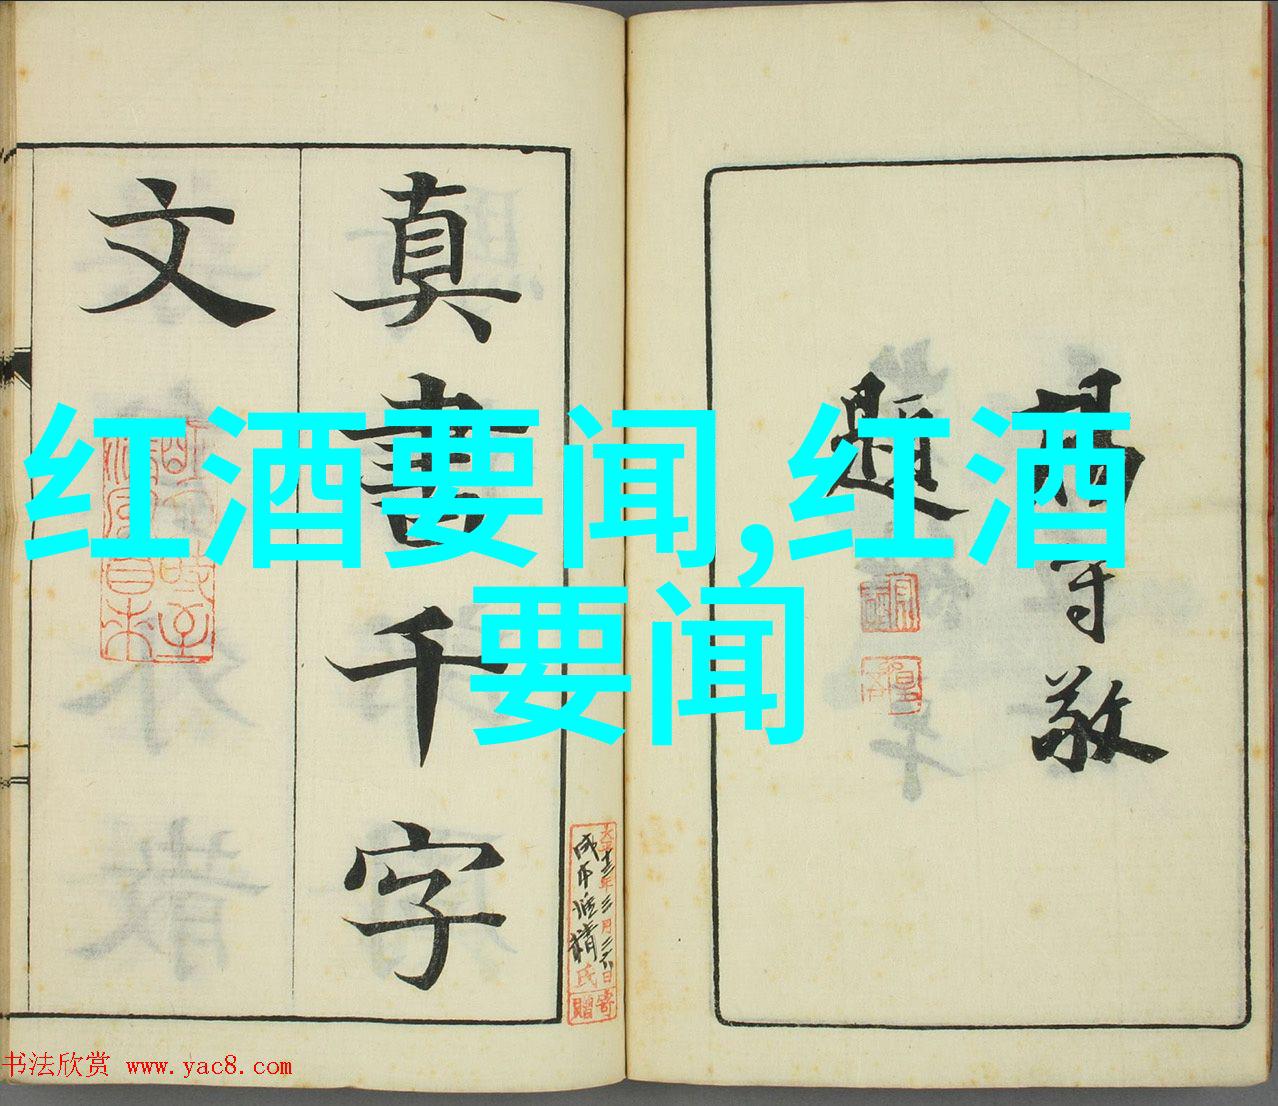 红酒要闻,红酒
要闻
楊守敬
題
真書千字
文
书法欣赏 www.yac8.com